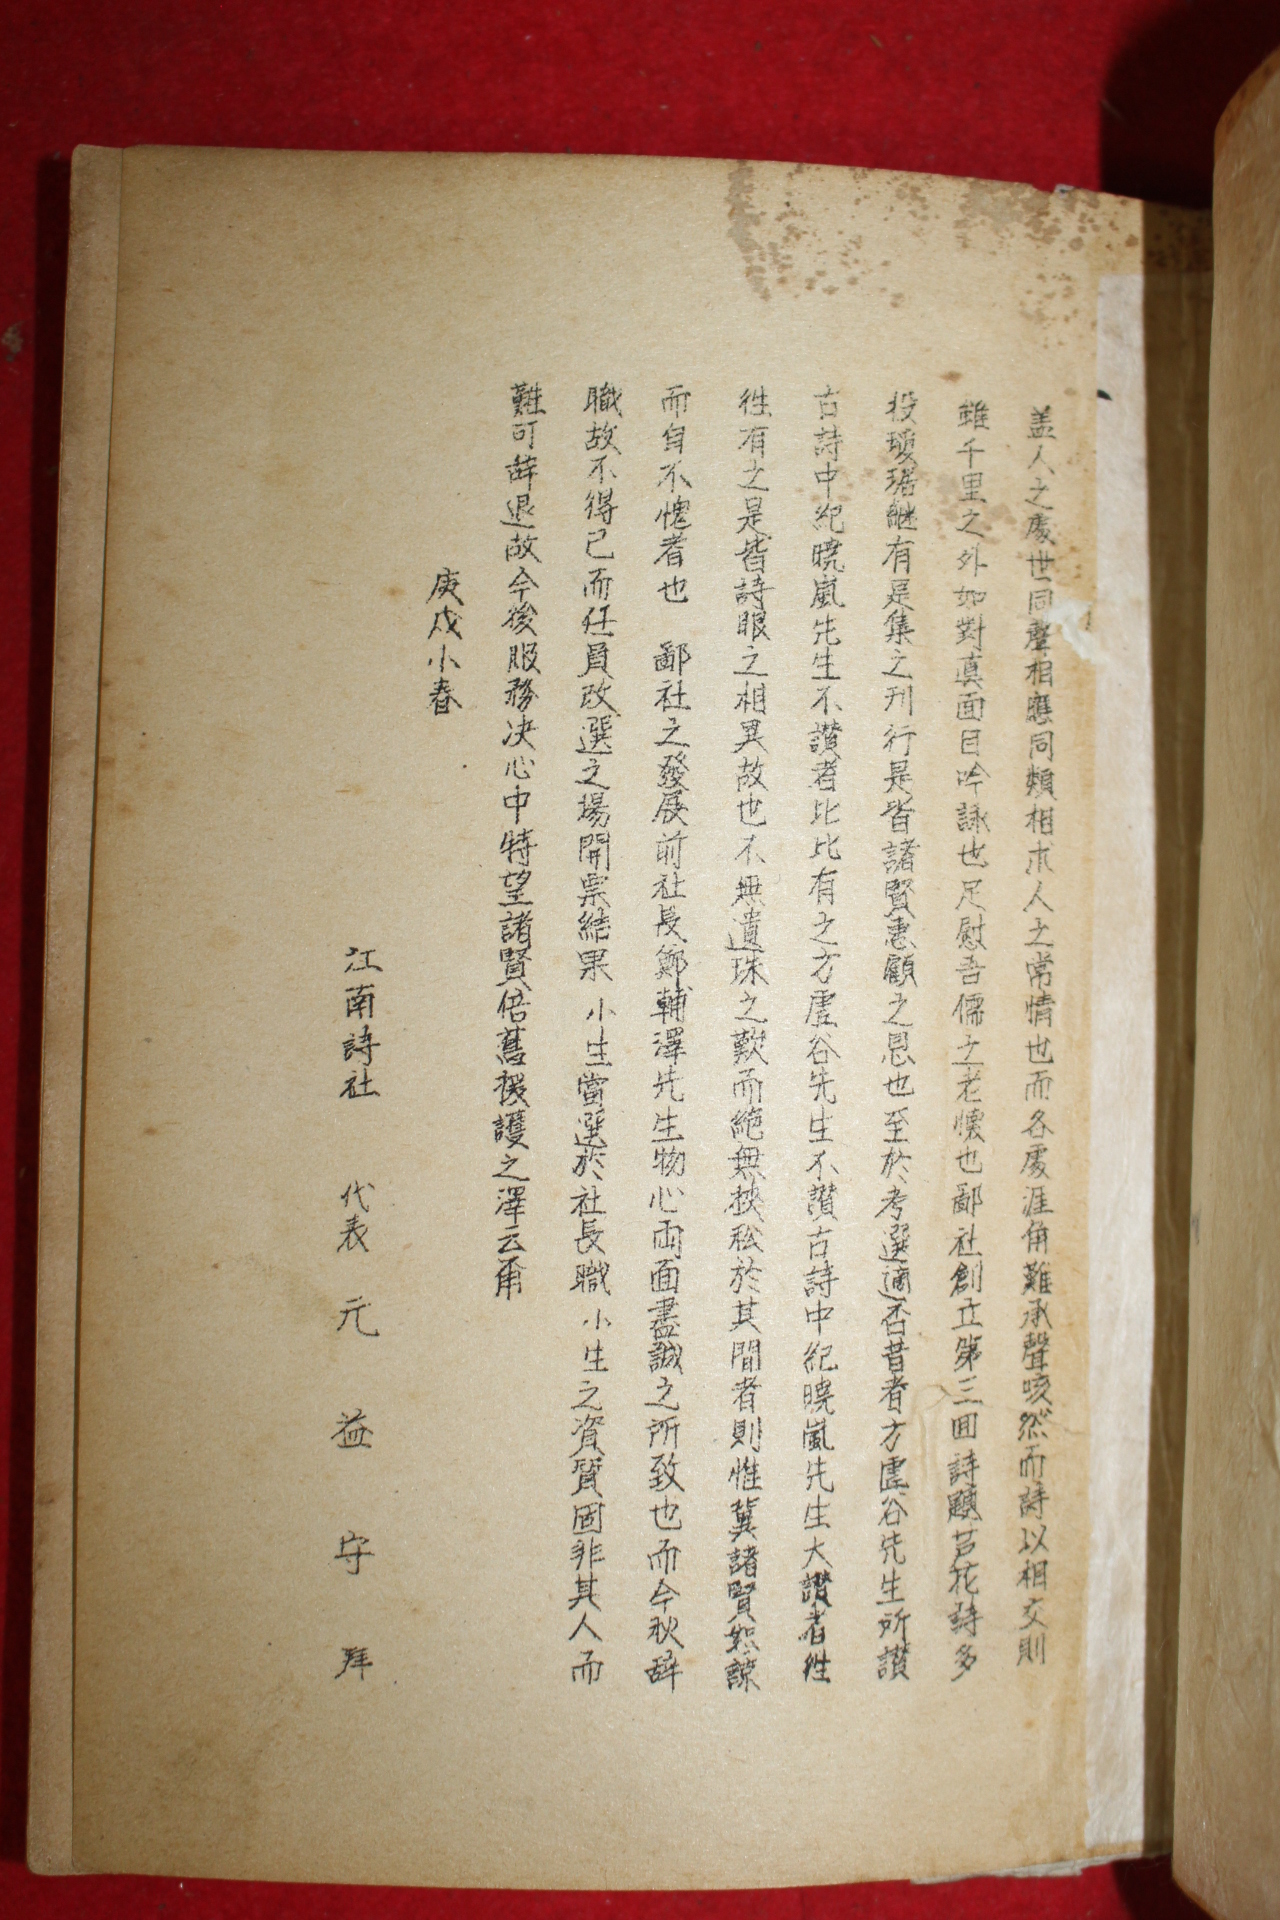 盖人之處世同聲相應同類相求人之常情也而各處涯角難承聲咳然而詩以相交則
雖千里之外如對真面目吟詠也足慰吾儒之老懷也鄙社創立第三回詩題芦花詩多
投瓊琚繼有是集之刊行是皆諸賢惠顧之恩也至於考選適否昔者方虛谷先生所讃
古詩中紀曉嵐先生不讃者比比有之方虛谷先生不讃古詩中紀曉嵐先生大讃者徃
徃有之是皆詩眼之相異故也不無遺珠之歎而絶無挾私於其間者則惟冀諸賢恕諒
而自不愧者也 鄙社之發展前社長鄭輔澤先生物心両面盡誠之所致也而今秋辞
職故不得已而任員改選之場開票結果 小生當選於社長職 小生之資質固非其人而
難可辞退故今後服務决心中特望諸賢倍舊援護之澤云甭
庚戌小春
江南詩社 代表 元益守 拜